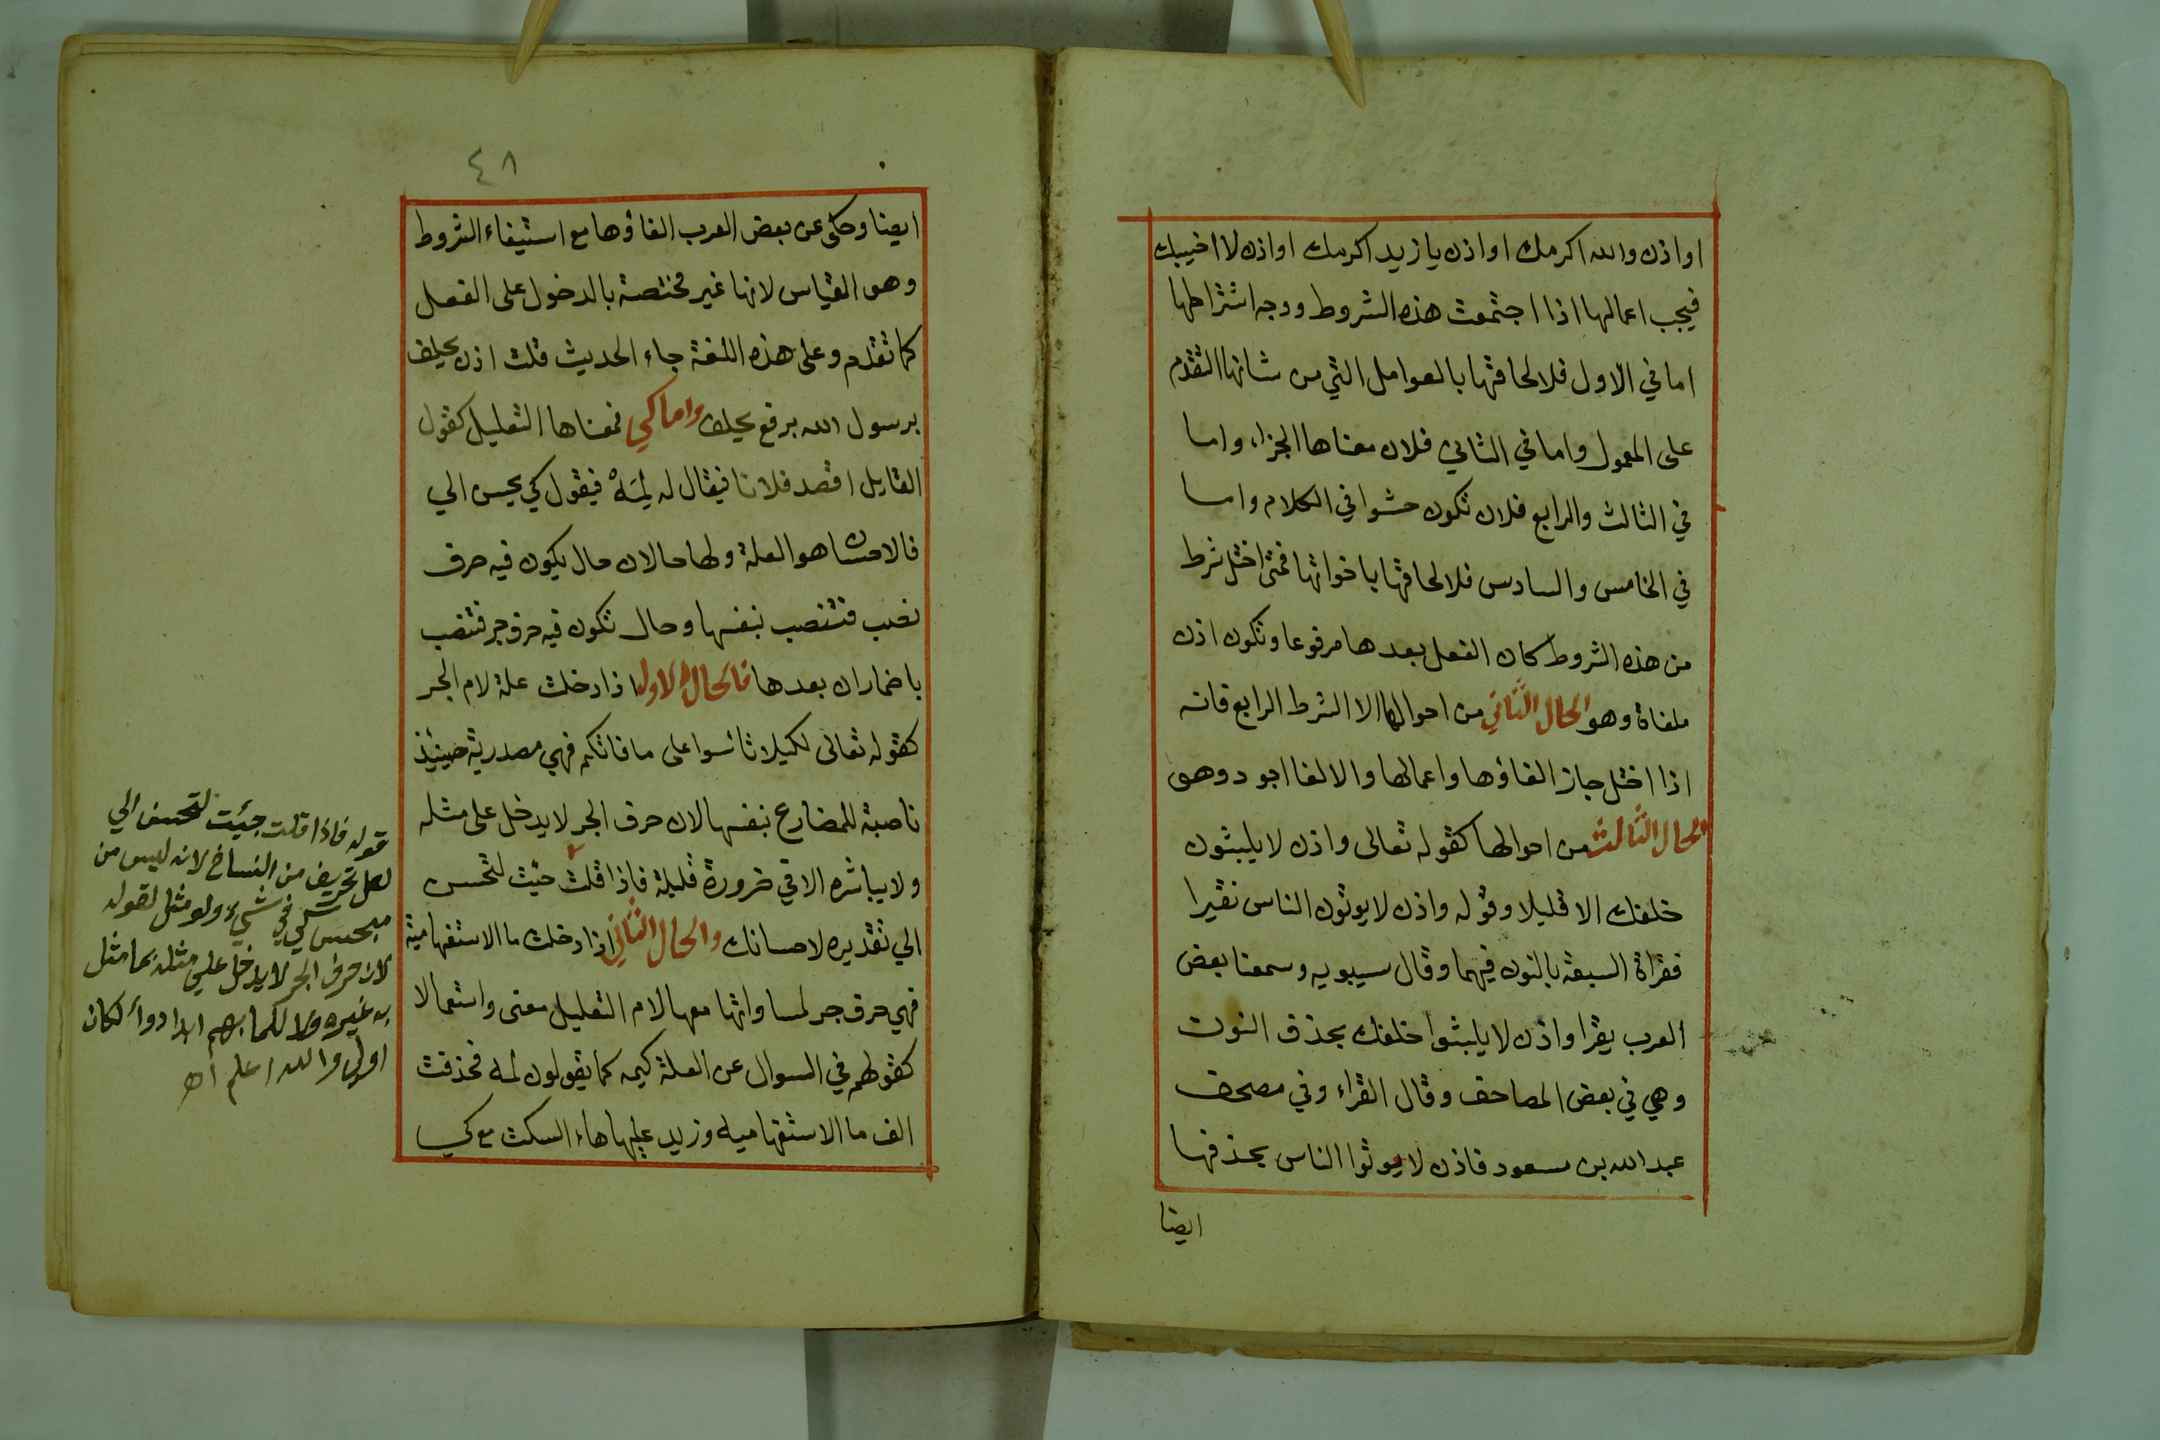 اواذن والله اكرمك اواذن يا زيد اكرمك اواذن لا اخيبك
فيجب اعمالها اذا اجتمعت هذه الشروط ووجه اشتراطها
اما في الاول فلالحاقها بالعوامل التي من شانها التقدم
على المعمول واما في الثاني فلان معناها الجزاء واما
في الثالث والرابع فلان تكون حشوا في الكلام واما
في الخامس والسادس فلالحاقها باخواتها فمتى اختل شرط
من هذه الشروط كان الفعل بعدها مرفوعا وتكون اذن
ملغاة وهو الحال الثاني من احوالها الا الشرط الرابع فانه
اذا اختل جاز الغاؤها واعمالها والالغا اجود وهى
الحال الثالث من احوالها كقوله تعالى واذن لا يلبثون
خلفك الا قليلا وقوله واذن لا يوتون الناس نقيرا
فقراة السبعة بالنون فيهما وقال سيبويه وسمعنا بعض
العرب يقرا واذن لا يلبثوا خلفك بحذف النون
وهي في بعض المصاحف وقال القراء وفي مصحف
عبد الله بن مسعود فاذن لا يوتوا الناس بحذفها
ايضا
٤٨
ايضا وحكى عن بعض العرب الغاؤها مع استيفاء الشروط
وهو القياس لانها غير مختصة بالدخول على الفعل
كما تقدم وعلى هذه اللغة جاء الحديث قلت اذن يحلف
برسول الله برفع يحلف واما كي فمعناها التعليل كقول
القايل اقصد فلانا فيقال له لِمَهْ فيقول كي يحسن الي
فالاحسان هو العلة ولها حالان حال يكون فيه حرف
نصب فتنصب بنفسها وحال تكون فيه حرف جر فتنصب
باضماران بعدها فالحال الاول اذا دخلت علة لام الجر
كقوله تعالى لكيلا تاسوا على ما فاتكم فهي مصدرية حينيذ
ناصبة للمضارع بنفسها لان حرف الجر لا يدخل على مثله
ولا يباشره الا في ضرورة قليلة فاذا قلت جيت لتحسن
الي تقديره لاحسانك والحال الثاني اذا دخلت ما الاستفهامية
فهي حرف جر لمساواتها معها لام التعليل معنى واستعمالا
كقولهم في السوال عن العلة كيمه كما يقولون لمه فحذفت
الف ما الاستفهاميه وزيد عليها هاء السكت مع كي
قوله فاذا قلت جيت لتحسن الي
لعل تحريف من النساخ لانه ليس من
مبحث كي في شيء ولو مثل لقوله
لان حرف الجر لا يدخل علي مثله بما مثل
به غيره
اولى والله اعلم اه